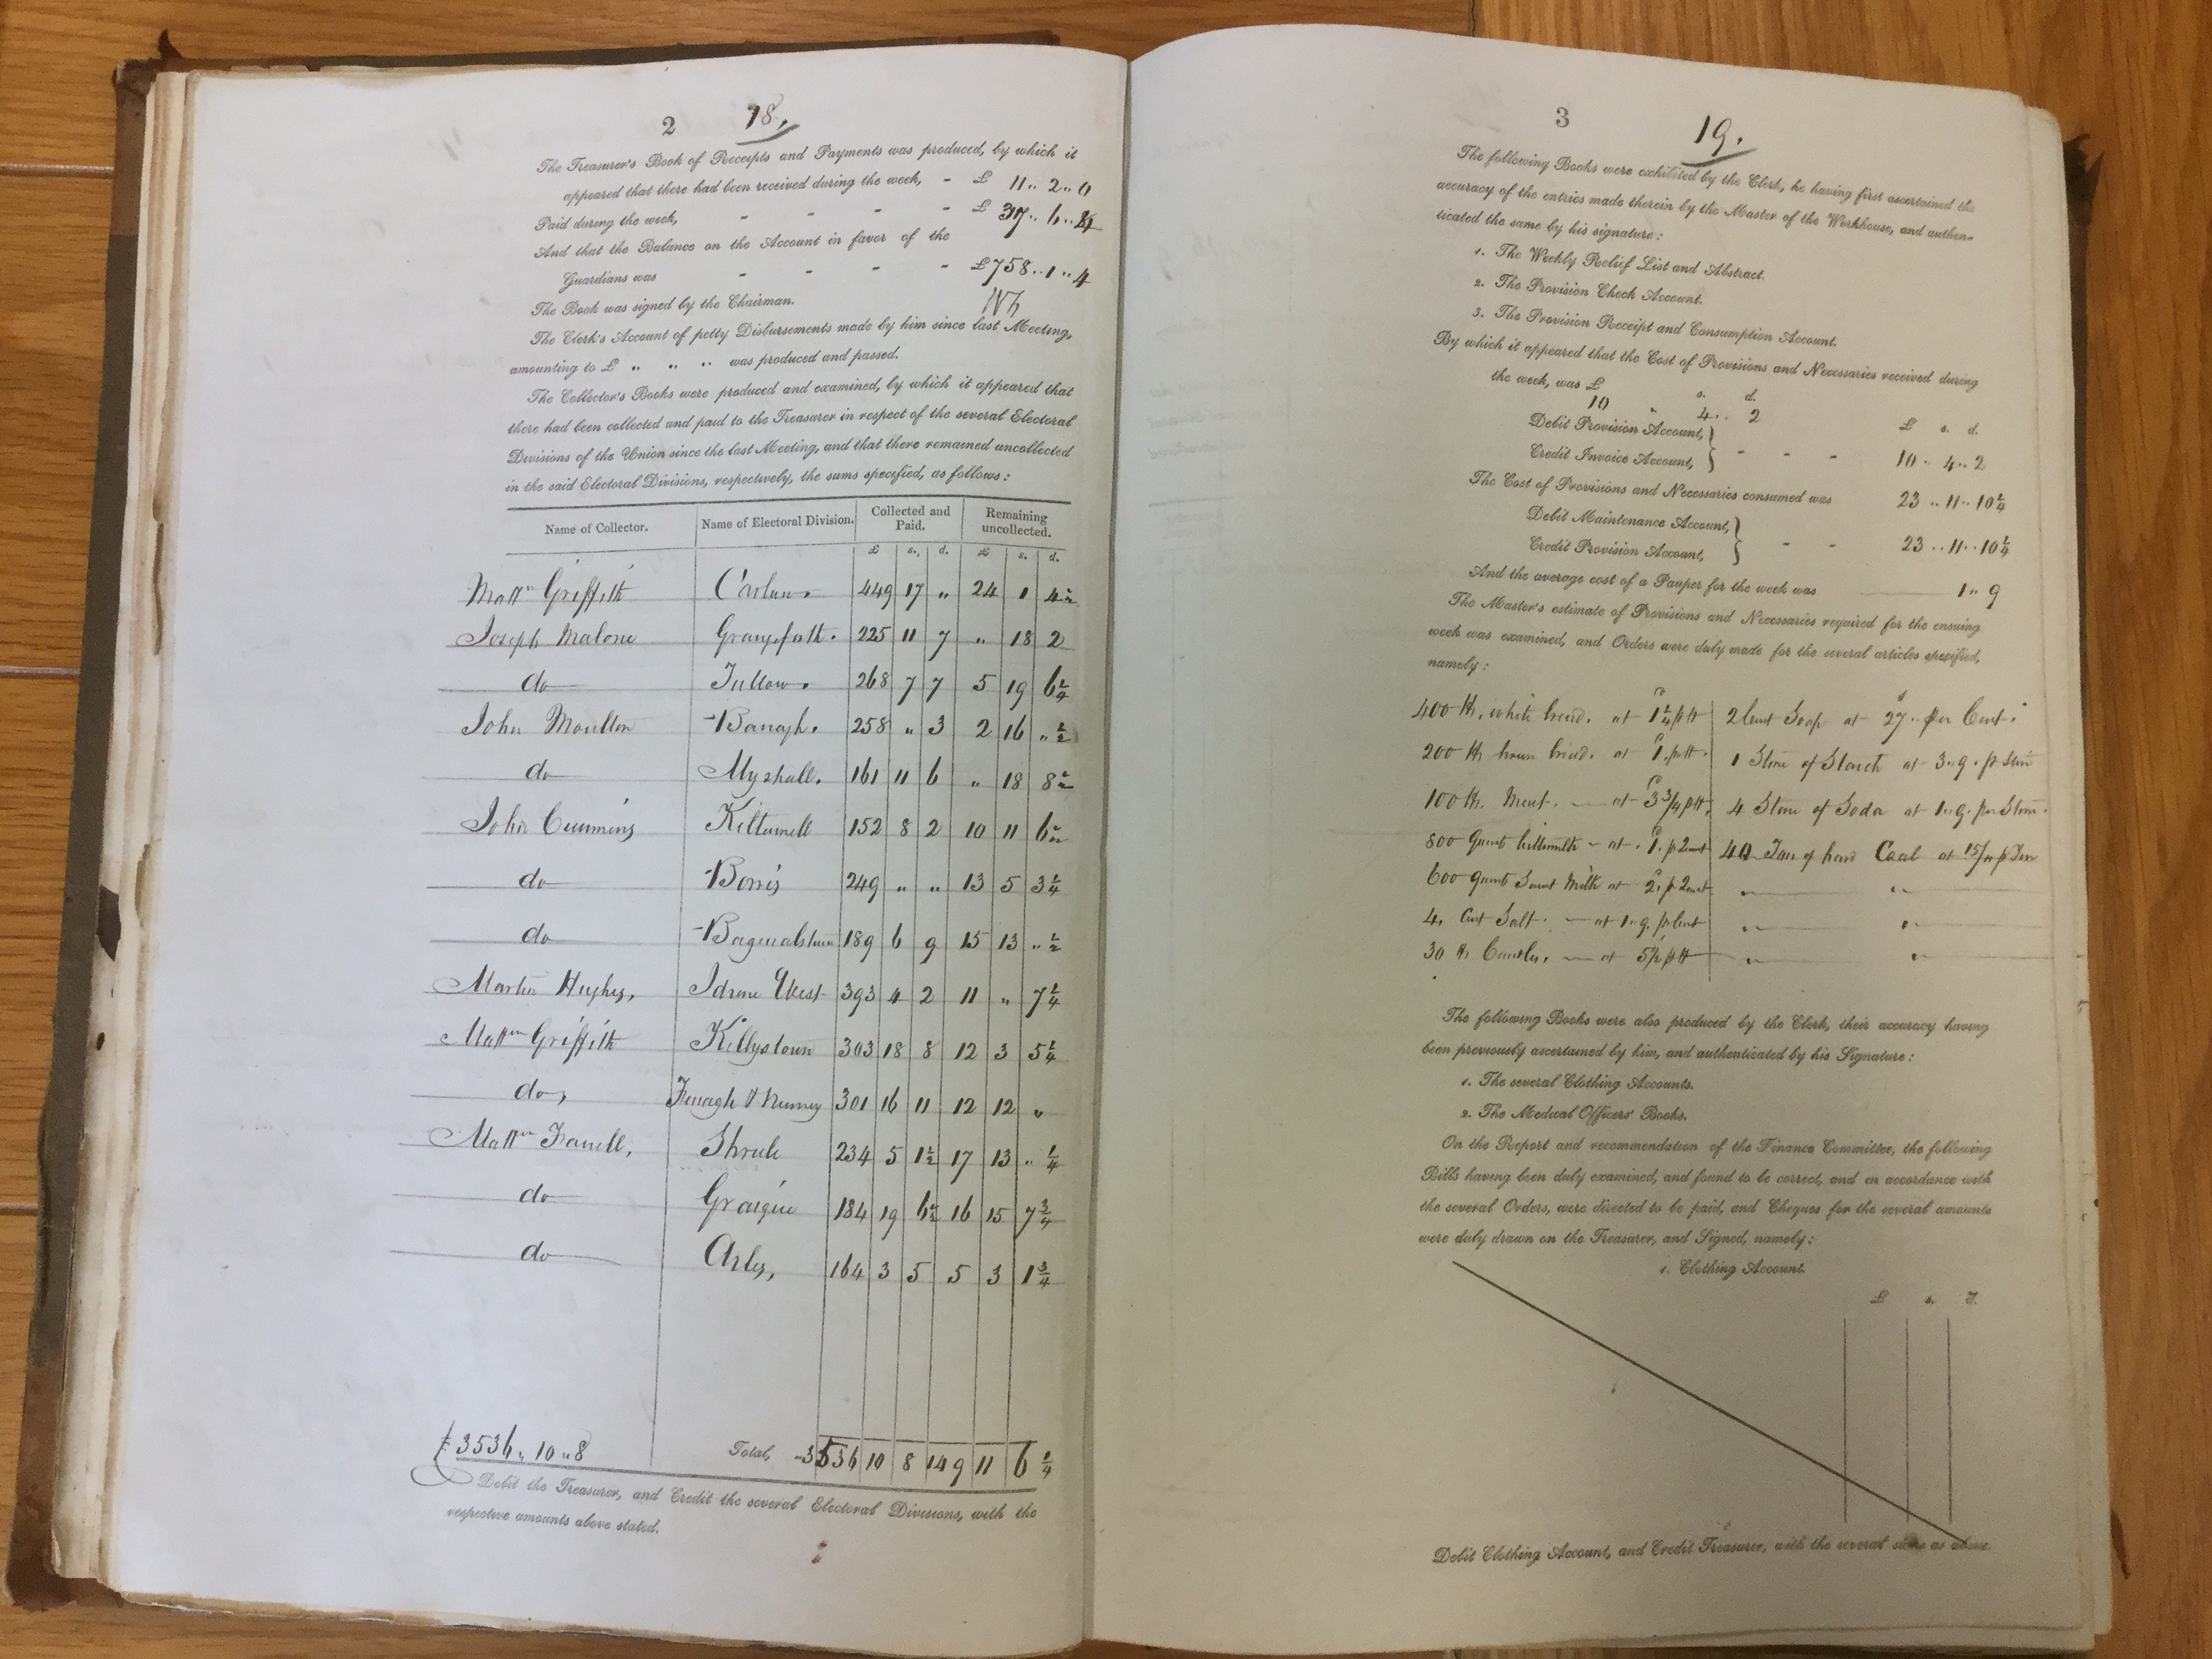 2 78.
The Treasurer's Book of Receipts and Payments was produced, by which it
appeared that there had been received during the week, - £ 11 .. 2 .. 0
Paid during the week, - - - - £ 37 .. 6 ..
And that the Balance on the Account in favor of the
Guardians was - - - - £758 .. 1 .. 4
The Book was signed by the Chairman.
The Clerk's Account of petty Disbursements made by him since last Meeting,
amounting to £ " " " was produced and passed.
The Collector's Books were produced and examined, by which it appeared that
there had been collected and paid to the Treasurer in respect of the several Electoral
Divisions of the Union since the last Meeting, and that there remained uncollected
in the said Electoral Divisions, respectively, the sums specified, as follows:
Name of Collector. Name of Electoral Division. Collected and Paid. Remaining uncollected.
£ s. d. £ s. d.
Mattw Griffith Carlow. 449 17 " 24 1 4½
Joseph Malone Grangeforth. 225 11 7 " 18 2
do Tullow. 268 7 7 5 19 6¼
John Moulton Barragh. 258 " 3 2 16 " ½
do Myshall. 161 11 6 " 18 8½
John Cummins Kiltennell 152 8 2 10 11 6½
do Borris 249 " " 13 5 3¼
do Bagenalstown 189 6 9 15 13 " ½
Martin Hughes, Idrone West 393 4 2 11 " 7¼
Mattw Griffith Killystown 303 18 8 12 3 5¼
do, Fenagh & Nurney 301 16 11 12 12 "
Mattw Farrell, Shrule 234 5 1½ 17 13 " ¼
do Graigue 184 19 6½ 16 15 7¾
do Arles, 164 3 5 5 3 1¾
£3536 " 10 " 8 Total, 3536 10 8 149 11 6¼
Debit the Treasurer, and Credit the several Electoral Divisions, with the
respective amounts above stated.
3 19.
The following Books were exhibited by the Clerk, he having first ascertained the
accuracy of the entries made therein by the Master of the Workhouse, and authen-
ticated the same by his signature:
1. The Weekly Relief List and Abstract.
2. The Provision Check Account.
3. The Provision Receipt and Consumption Account.
By which it appeared that the Cost of Provisions and Necessaries received during
the week, was £ s. d.
10 " 4 .. 2
£ s. d.
Debit Provision Account, }
Credit Invoice Account, } - - - 10 .. 4 .. 2
The Cost of Provisions and Necessaries consumed was 23 .. 11 .. 10¼
Debit Maintenance Account, }
Credit Provision Account, } - - 23 .. 11 .. 10¼
And the average cost of a Pauper for the week was 1 " 9
The Master's estimate of Provisions and Necessaries required for the ensuing
week was examined, and Orders were duly made for the several articles specified,
namely:
400 lb. white bread. at 1¼ p lb 2 Cwt Soap at 27 " per Cwt.
200 lb brown bread. at 1. p lb. 1 Stone of Starch at 3 " 9. p Stone
100 lb. Meat. at 3¾ p lb. 4 Stone of Soda at 1 " 9. per Stone.
800 Quart Buttermilk at 1. p Quart 40 Ton of hard Coal at 15/" p Ton
600 Quart Sweet Milk at 2. p Quart " "
4. Cwt Salt. at 1 " 9. p Cwt " "
30 lb Candles. at 5½ p lb " "
The following Books were also produced by the Clerk, their accuracy having
been previously ascertained by him, and authenticated by his Signature:
1. The several Clothing Accounts.
2. The Medical Officers' Books.
On the Report and recommendation of the Finance Committee, the following
Bills having been duly examined, and found to be correct, and in accordance with
the several Orders, were directed to be paid, and Cheques for the several amounts
were duly drawn on the Treasurer, and Signed, namely:
1. Clothing Account.
£ s. d.
Debit Clothing Account, and Credit Treasurer, with the several sums as above.